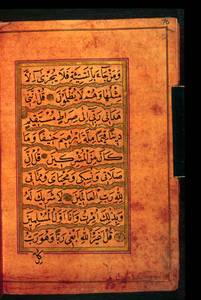 وَمَنْ جَاءَ بِالسَّيِّئَةِ فَلَا يُجْزَى إِلَّا
مِثْلَهَا وَهُمْ لَا يُظْلَمُونَ قُلْ إِنَّنِي
هَدَانِي رَبِّي إِلَى صِرَاطٍ مُسْتَقِيمٍ
دِينًا قِيَمًا مِلَّةَ إِبْرَاهِيمَ حَنِيفًا وَمَا
كَانَ مِنَ الْمُشْرِكِينَ قُلْ إِنَّ
صَلَاتِي وَنُسُكِي وَمَحْيَايَ وَمَمَاتِي
لِلَّهِ رَبِّ الْعَالَمِينَ لَا شَرِيكَ لَهُ
وَبِذَلِكَ أُمِرْتُ وَأَنَا أَوَّلُ الْمُسْلِمِينَ
قُلْ أَغَيْرَ اللَّهِ أَبْغِي رَبًّا وَهُوَ رَبُّ
كل